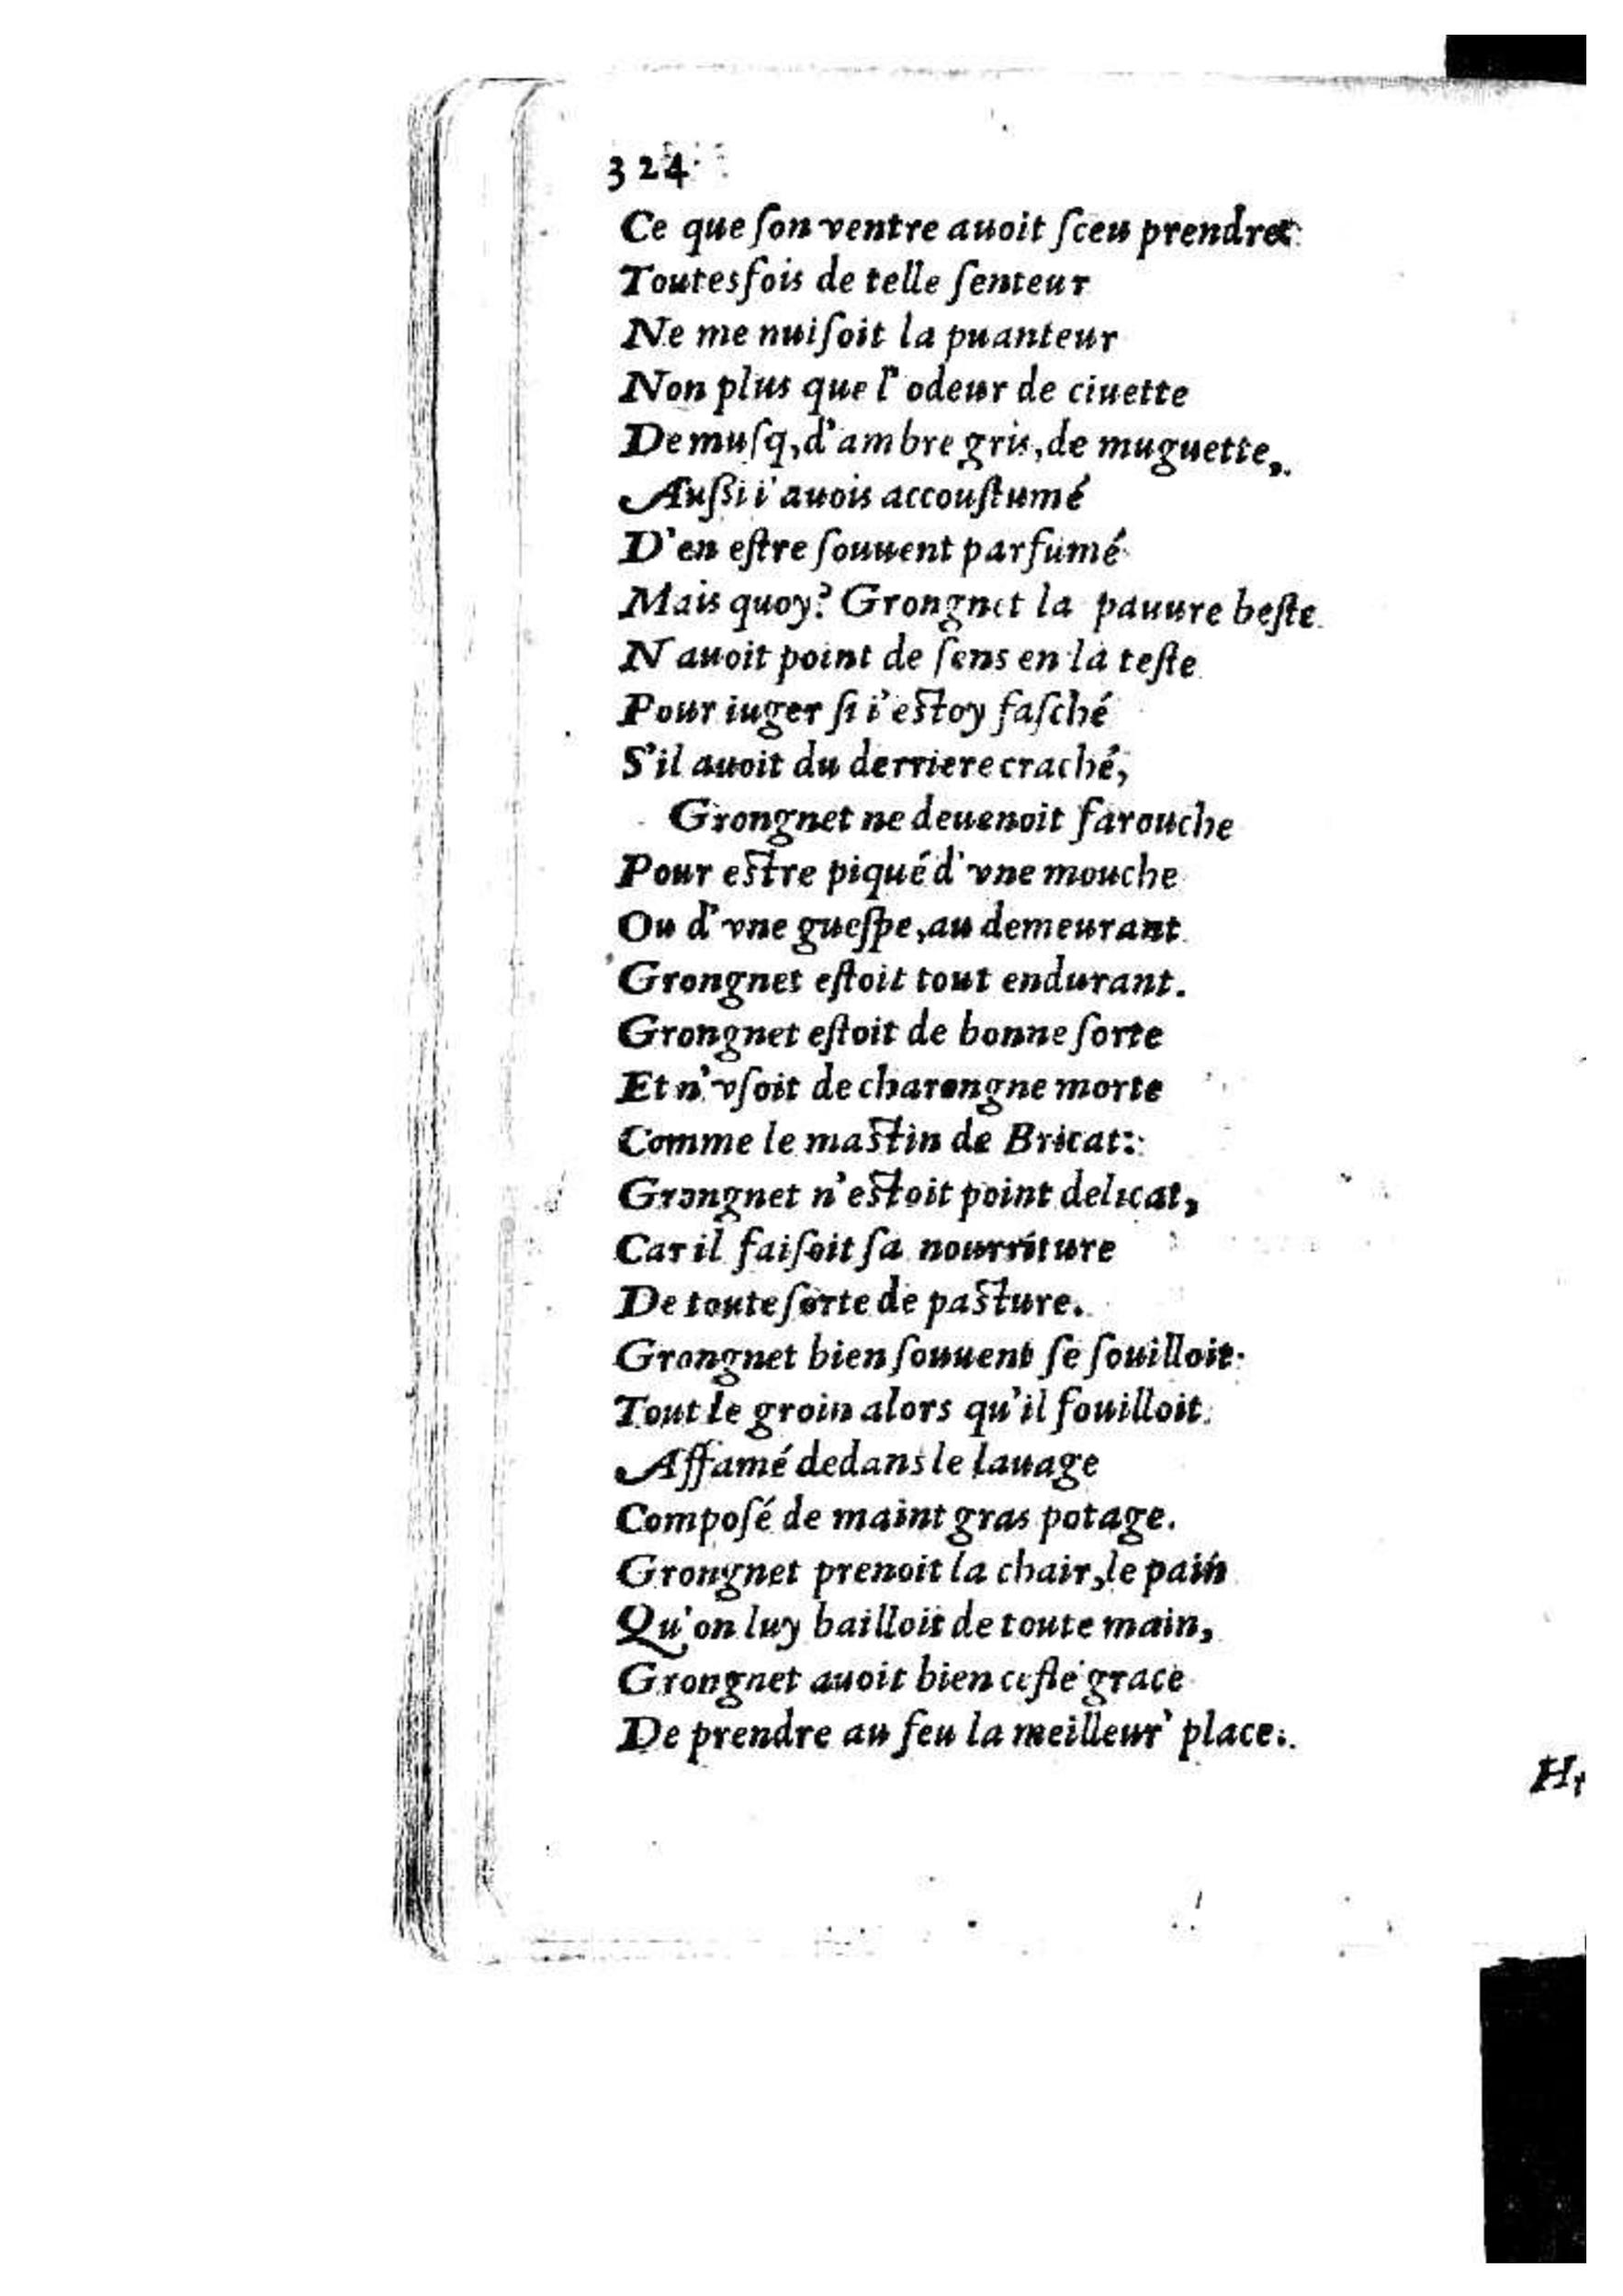 324
Ce que ſon ventre auoit ſceu prendre:
Toutesfois de telle ſenteur
Ne me nuiſoit la puanteur
Non plus que l'odeur de ciuette
De muſq, d'ambre gris, de muguette,
Auſſi i'auois accouſtumé
D'en eſtre ſouuent parfumé
Mais quoy? Grongnet la pauure beſte
N'auoit point de ſens en la teſte
Pour iuger ſi i'eſtoy faſché
S'il auoit du derriere craché,
Grongnet ne deuenoit farouche
Pour eſtre piqué d'vne mouche
Ou d'vne gueſpe, au demeurant
Grongnet eſtoit tout endurant.
Grongnet eſtoit de bonne ſorte
Et n'vſoit de charongne morte
Comme le maſtin de Bricat:
Grongnet n'eſtoit point delicat,
Car il faiſoit ſa nourriture
De toute ſorte de paſture.
Grongnet bien ſouuent ſe ſouilloit
Tout le groin alors qu'il fouilloit
Affamé dedans le lauage
Compoſé de maint gras potage.
Grongnet prenoit la chair, le pain
Qu'on luy bailloit de toute main,
Grongnet auoit bien ceſte grace
De prendre au feu la meilleur' place.